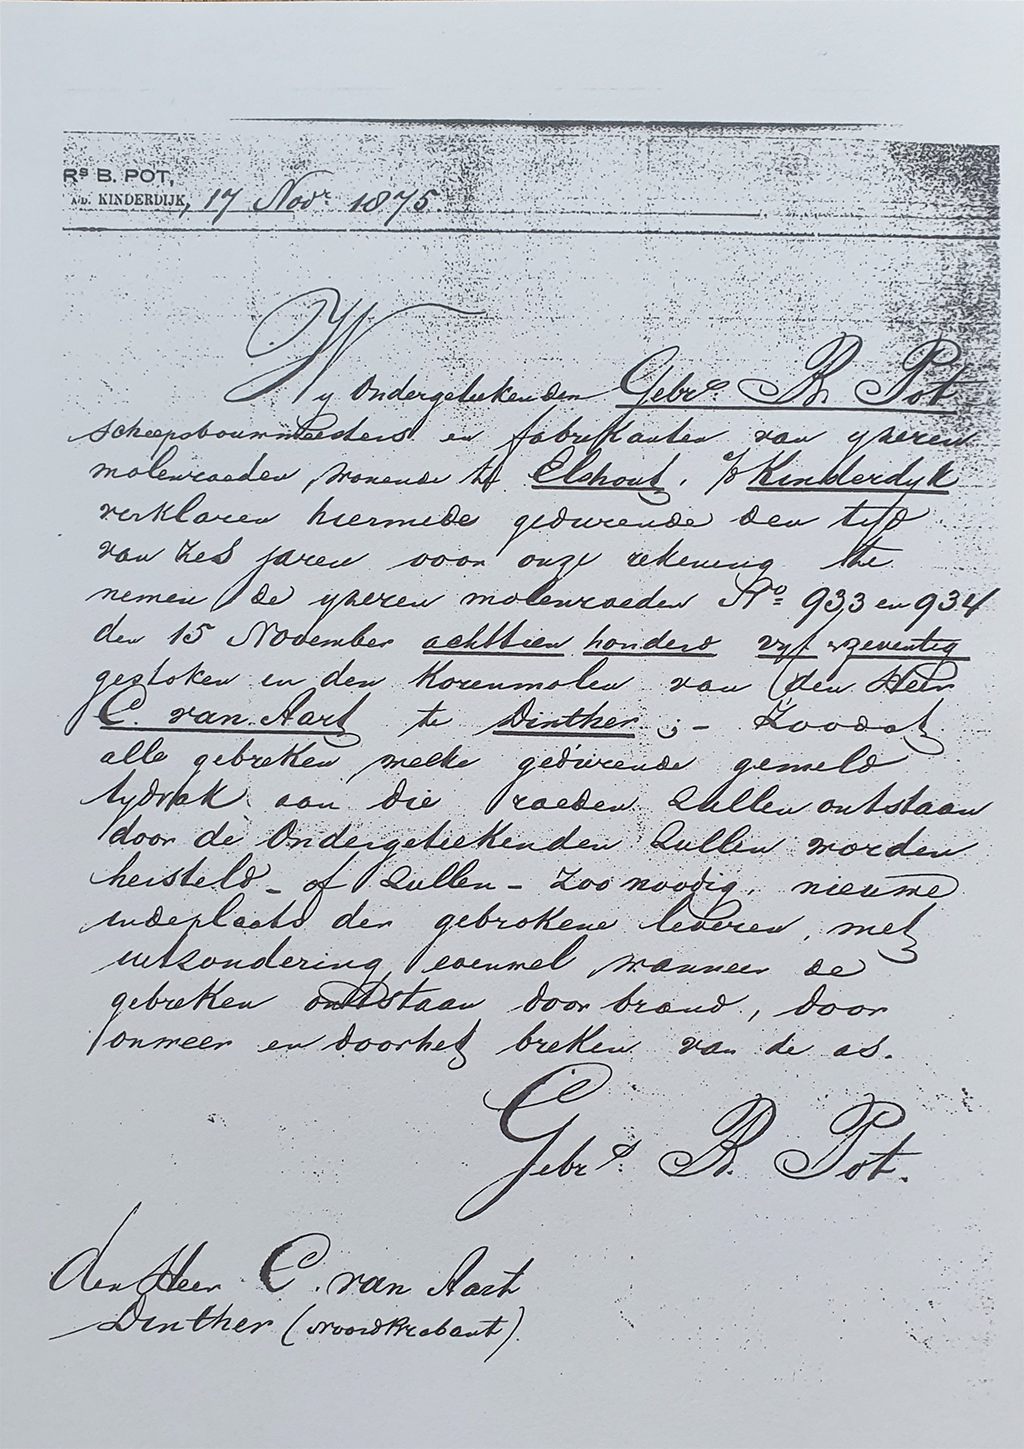 Rs B. POT,
A/D. KINDERDIJK, 17 Novr 1875.
Wy Ondergeteekenden Gebrs. B. Pot
Scheepsbouwmeesters en fabrikanten van yzeren
molenroeden, wonende te Elshout, a/d Kinderdyk
verklaren hiermede gedurende den tijd
van Zes jaren voor onze rekening te
nemen de yzeren molenroeden No= 933 en 934
den 15 November achttien honderd vyf en zeventig
gestoken in den Korenmolen van den Heer
C. van Aart te Dinther ;- Zoodat
alle gebreken, welke gedurende gemeld
tydvak aan die roeden Zullen ontstaan
door de Ondergeteekenden Zullen worden
hersteld - of Zullen - Zoo noodig, nieuwe
indeplaats der gebrokene leveren, met
uitzondering, evenwel wanneer de
gebreken ontstaan door brand, door
onweer en doorhet breken van de as.
Gebrs. B. Pot.
den Heer C. van Aart
Dinther (NoordBrabant).